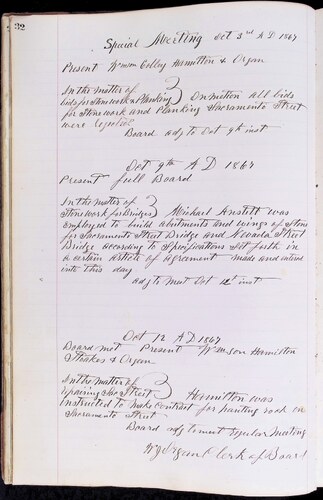 32
Special Meeting Oct 3rd A.D 1867
Present Wmson Colby Hamilton & Organ
In the matter of
bids for Stone work & Planking } On motion all bids
for Stone work and Planking Sacramento Street
were rejected
Board adj to Oct 9th inst
Oct 9th A D 1867
Present full Board
In the matter of
Stone work for Bridges } Michael Anstett was
employed to build abutments and wings of Stone
for Sacramento Street Bridge and Nevada Street
Bridge according to Specifications Set forth in
a certain article of agreement made and entered
into this day
adj to meet Oct 12th inst
Oct 12 A D 1867
Board met Present Wmson Hamilton
& Organ
In the matter of
repairing Sac Street } Hamilton was
instructed to make Contract for hauling rock on
Sacramento Street
Board adj to meet regular Meeting
Clerk of Board